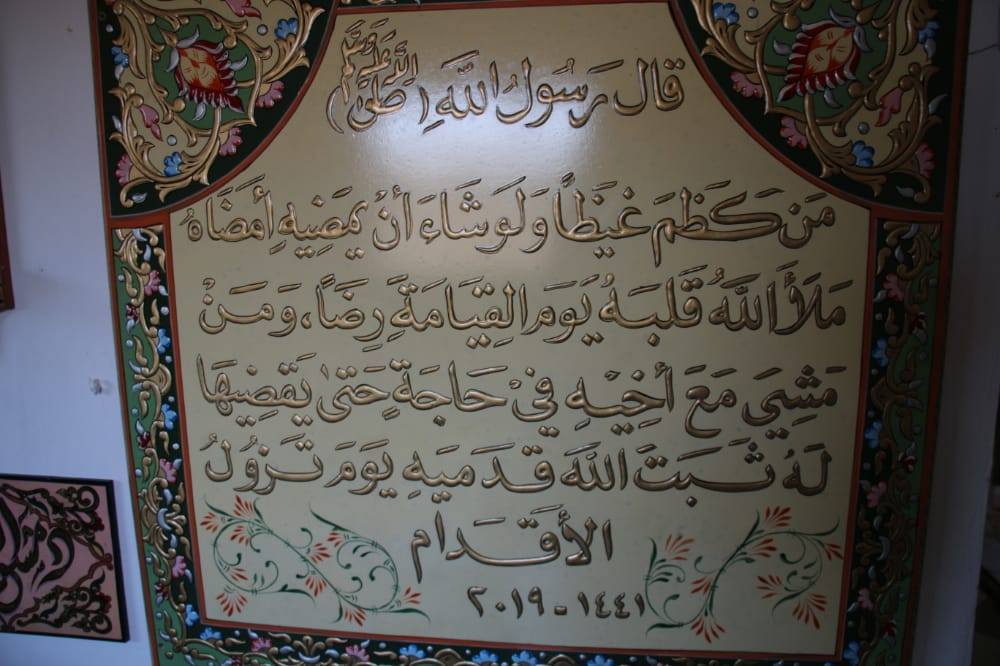 قَالَ رَسُولُ اللَّهِ (صَلَّى اللَّه عَلَيْهِ وَسَلَّمَ)
مَنْ كَظَمَ غَيْظًا وَلَوْ شَاءَ أَنْ يَمْضِيهِ أَمْضَاهُ
مَلَأَ اللَّهُ قَلْبَهُ يَوْمَ الْقِيَامَةِ رِضًا، وَمَنْ
مَشِيَ مَعَ أَخِيْهِ فِيْ حَاجَةٍ حَتَىٰ يَقْضِيهَا
لَهُ ثَبَتَ اللَّهَ قَدَمَيْهِ يَوْمَ تَزُولُ
الْأَقْدَام
١٤٤١ - ٢٠١٩